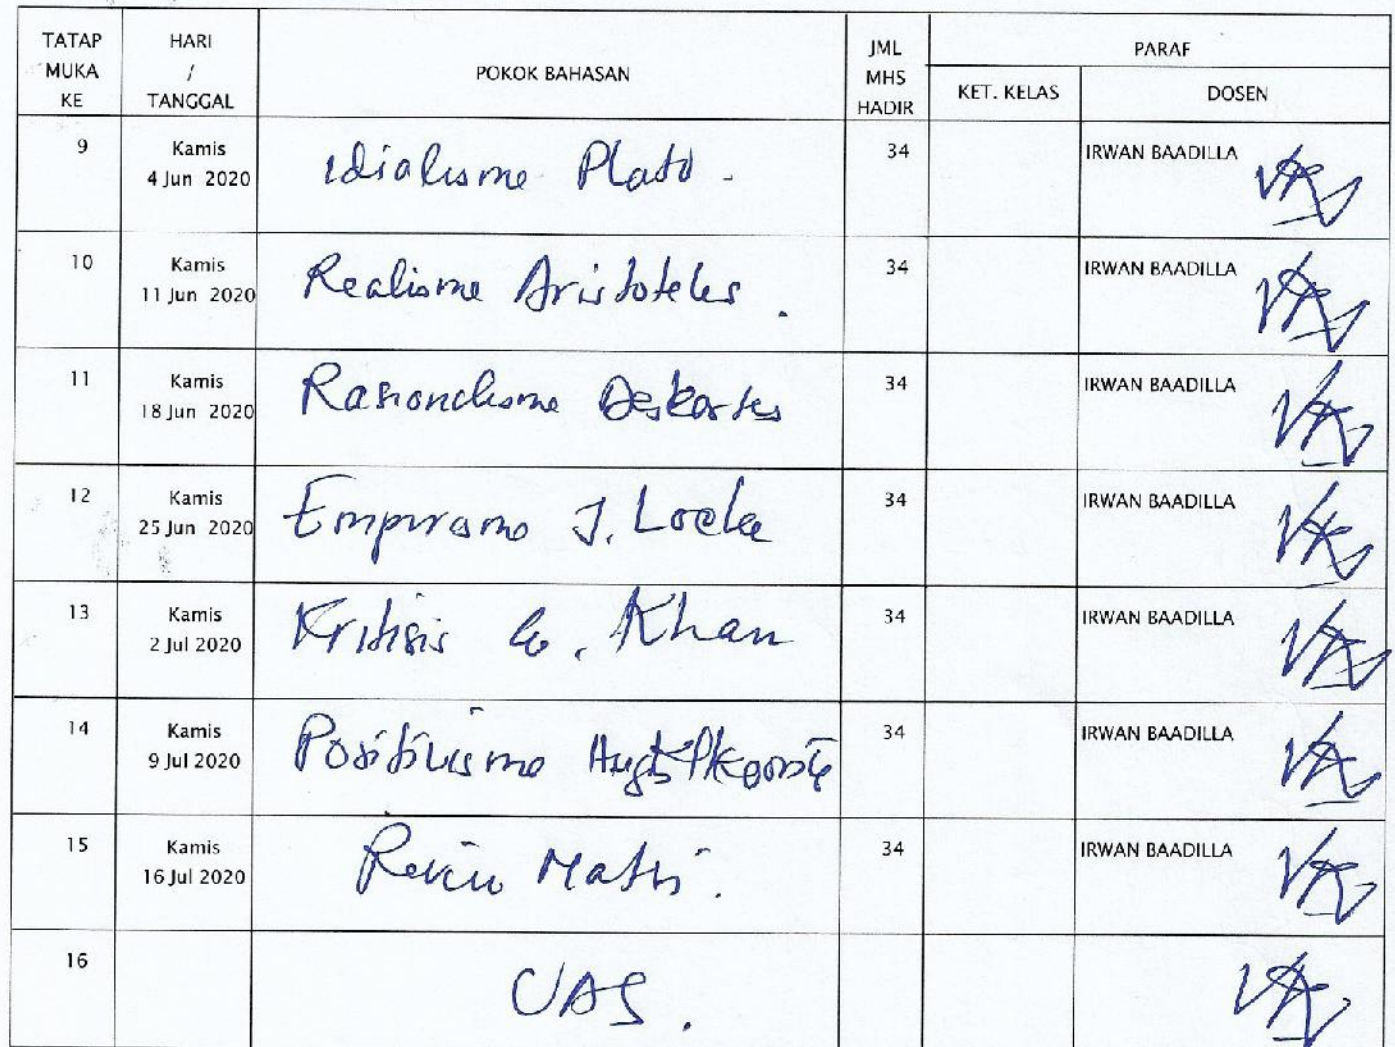 TATAP MUKA KE HARI / TANGGAL POKOK BAHASAN JML MHS HADIR PARAF
KET. KELAS DOSEN
9 Kamis 4 Jun 2020 Idialisme Plato. 34 IRWAN BAADILLA
10 Kamis 11 Jun 2020 Realisme Aristoteles. 34 IRWAN BAADILLA
11 Kamis 18 Jun 2020 Rasionalisme Deskartes 34 IRWAN BAADILLA
12 Kamis 25 Jun 2020 Empirisme J. Locke 34 IRWAN BAADILLA
13 Kamis 2 Jul 2020 Kritisis Khan 34 IRWAN BAADILLA
14 Kamis 9 Jul 2020 Positivisme 34 IRWAN BAADILLA
15 Kamis 16 Jul 2020 Reviu Matri. 34 IRWAN BAADILLA
16 UAS.